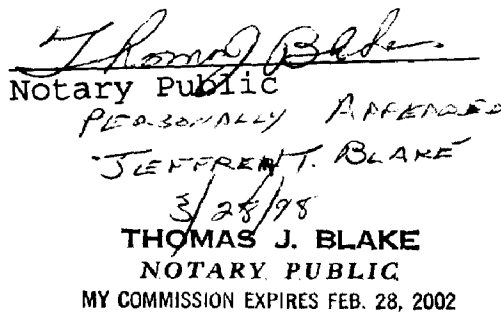 Thomas J Blake
Notary Public
PERSONALLY APPEARED
JEFFREY T. BLAKE
3/28/98
THOMAS J. BLAKE
NOTARY PUBLIC
MY COMMISSION EXPIRES FEB. 28, 2002